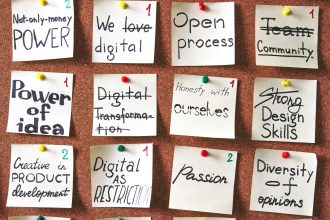 2
Not-only-money
POWER
We love
digital
1
Open
process
Team
Community
1
Power
of
idea
Digital
Transforma-
tion
1
Honesty with
ourselves
Strong
Design
Skills
2
Creative in
PRODUCT
development
1
Digital
AS
RESTRICTION
2
Passion
Diversity
of
opinions